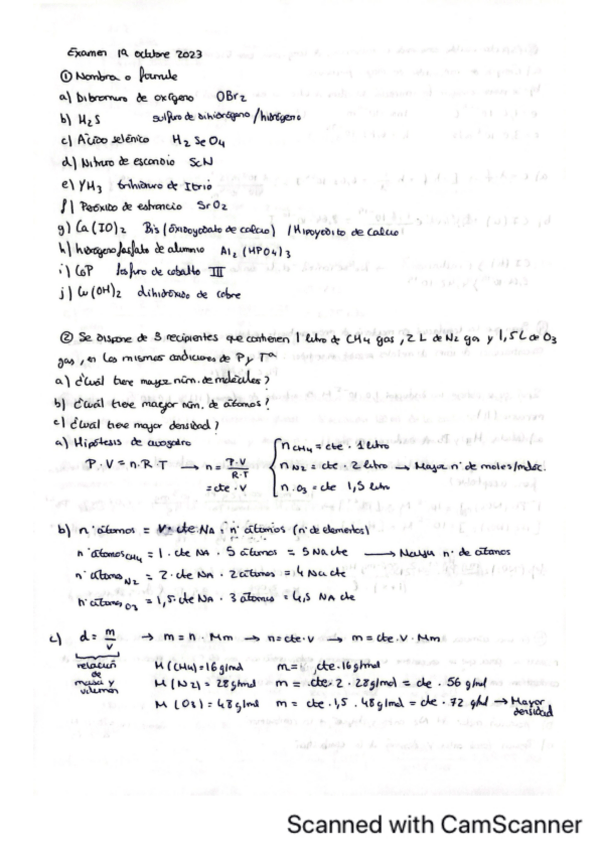 Examen 19 octubre 2023
① Nombra o formule
a) Dibromuro de oxígeno OBr₂
b) H₂S sulfuro de dihidrógeno / hidrógeno
c) Ácido selénico H₂SeO₄
d) Nitruro de escandio ScN
e) YH₃ trihidruro de Itrio
f) Peróxido de estroncio SrO₂
g) Ca(IO)₂ Bis(óxidoyodato de calcio) / Hipoyodito de Calcio
h) hidrogenofosfato de aluminio Al₂(HPO₄)₃
i) CoP fosfuro de cobalto III
j) Cu(OH)₂ dihidróxido de cobre
② Se dispone de 3 recipientes que contienen 1 litro de CH₄ gas, 2 L de N₂ gas y 1,5 L de O₃
gas, en las mismas condiciones de P y Tª
a) ¿Cuál tiene mayor núm. de moléculas?
b) ¿Cuál tiene mayor núm. de átomos?
c) ¿Cuál tiene mayor densidad?
a) Hipótesis de avogadro
P · V = n · R · T → n = P·V / R·T = cte · V
n CH₄ = cte · 1 litro
n N₂ = cte · 2 litro → Mayor nº de moles/moléc.
n O₃ = cte 1,5 litro
b) nº átomos = V · cte NA · nº átomos (nº de elementos)
nº átomos CH₄ = 1 · cte NA · 5 átomos = 5 NA cte → Mayor nº de átomos
nº átomos N₂ = 2 · cte NA · 2 átomos = 4 NA cte
nº átomos O₃ = 1,5 · cte NA · 3 átomos = 4,5 NA cte
c) d = m/v → m = n · Mm → n = cte · v → m = cte · V · Mm
relación de masa y volumen
M (CH₄) = 16 g/mol m = cte · 16 g/mol
M (N₂) = 28 g/mol m = cte · 2 · 28 g/mol = cte · 56 g/mol
M (O₃) = 48 g/mol m = cte · 1,5 · 48 g/mol = cte · 72 g/mol → Mayor densidad
Scanned with CamScanner